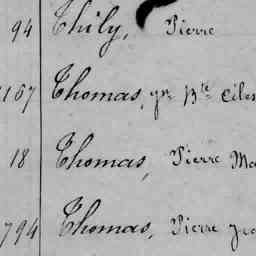 94 Thily, Pierre
1167 Thomas, Jn Bte
18 Thomas, Pierre
794 Thomas, Pierre